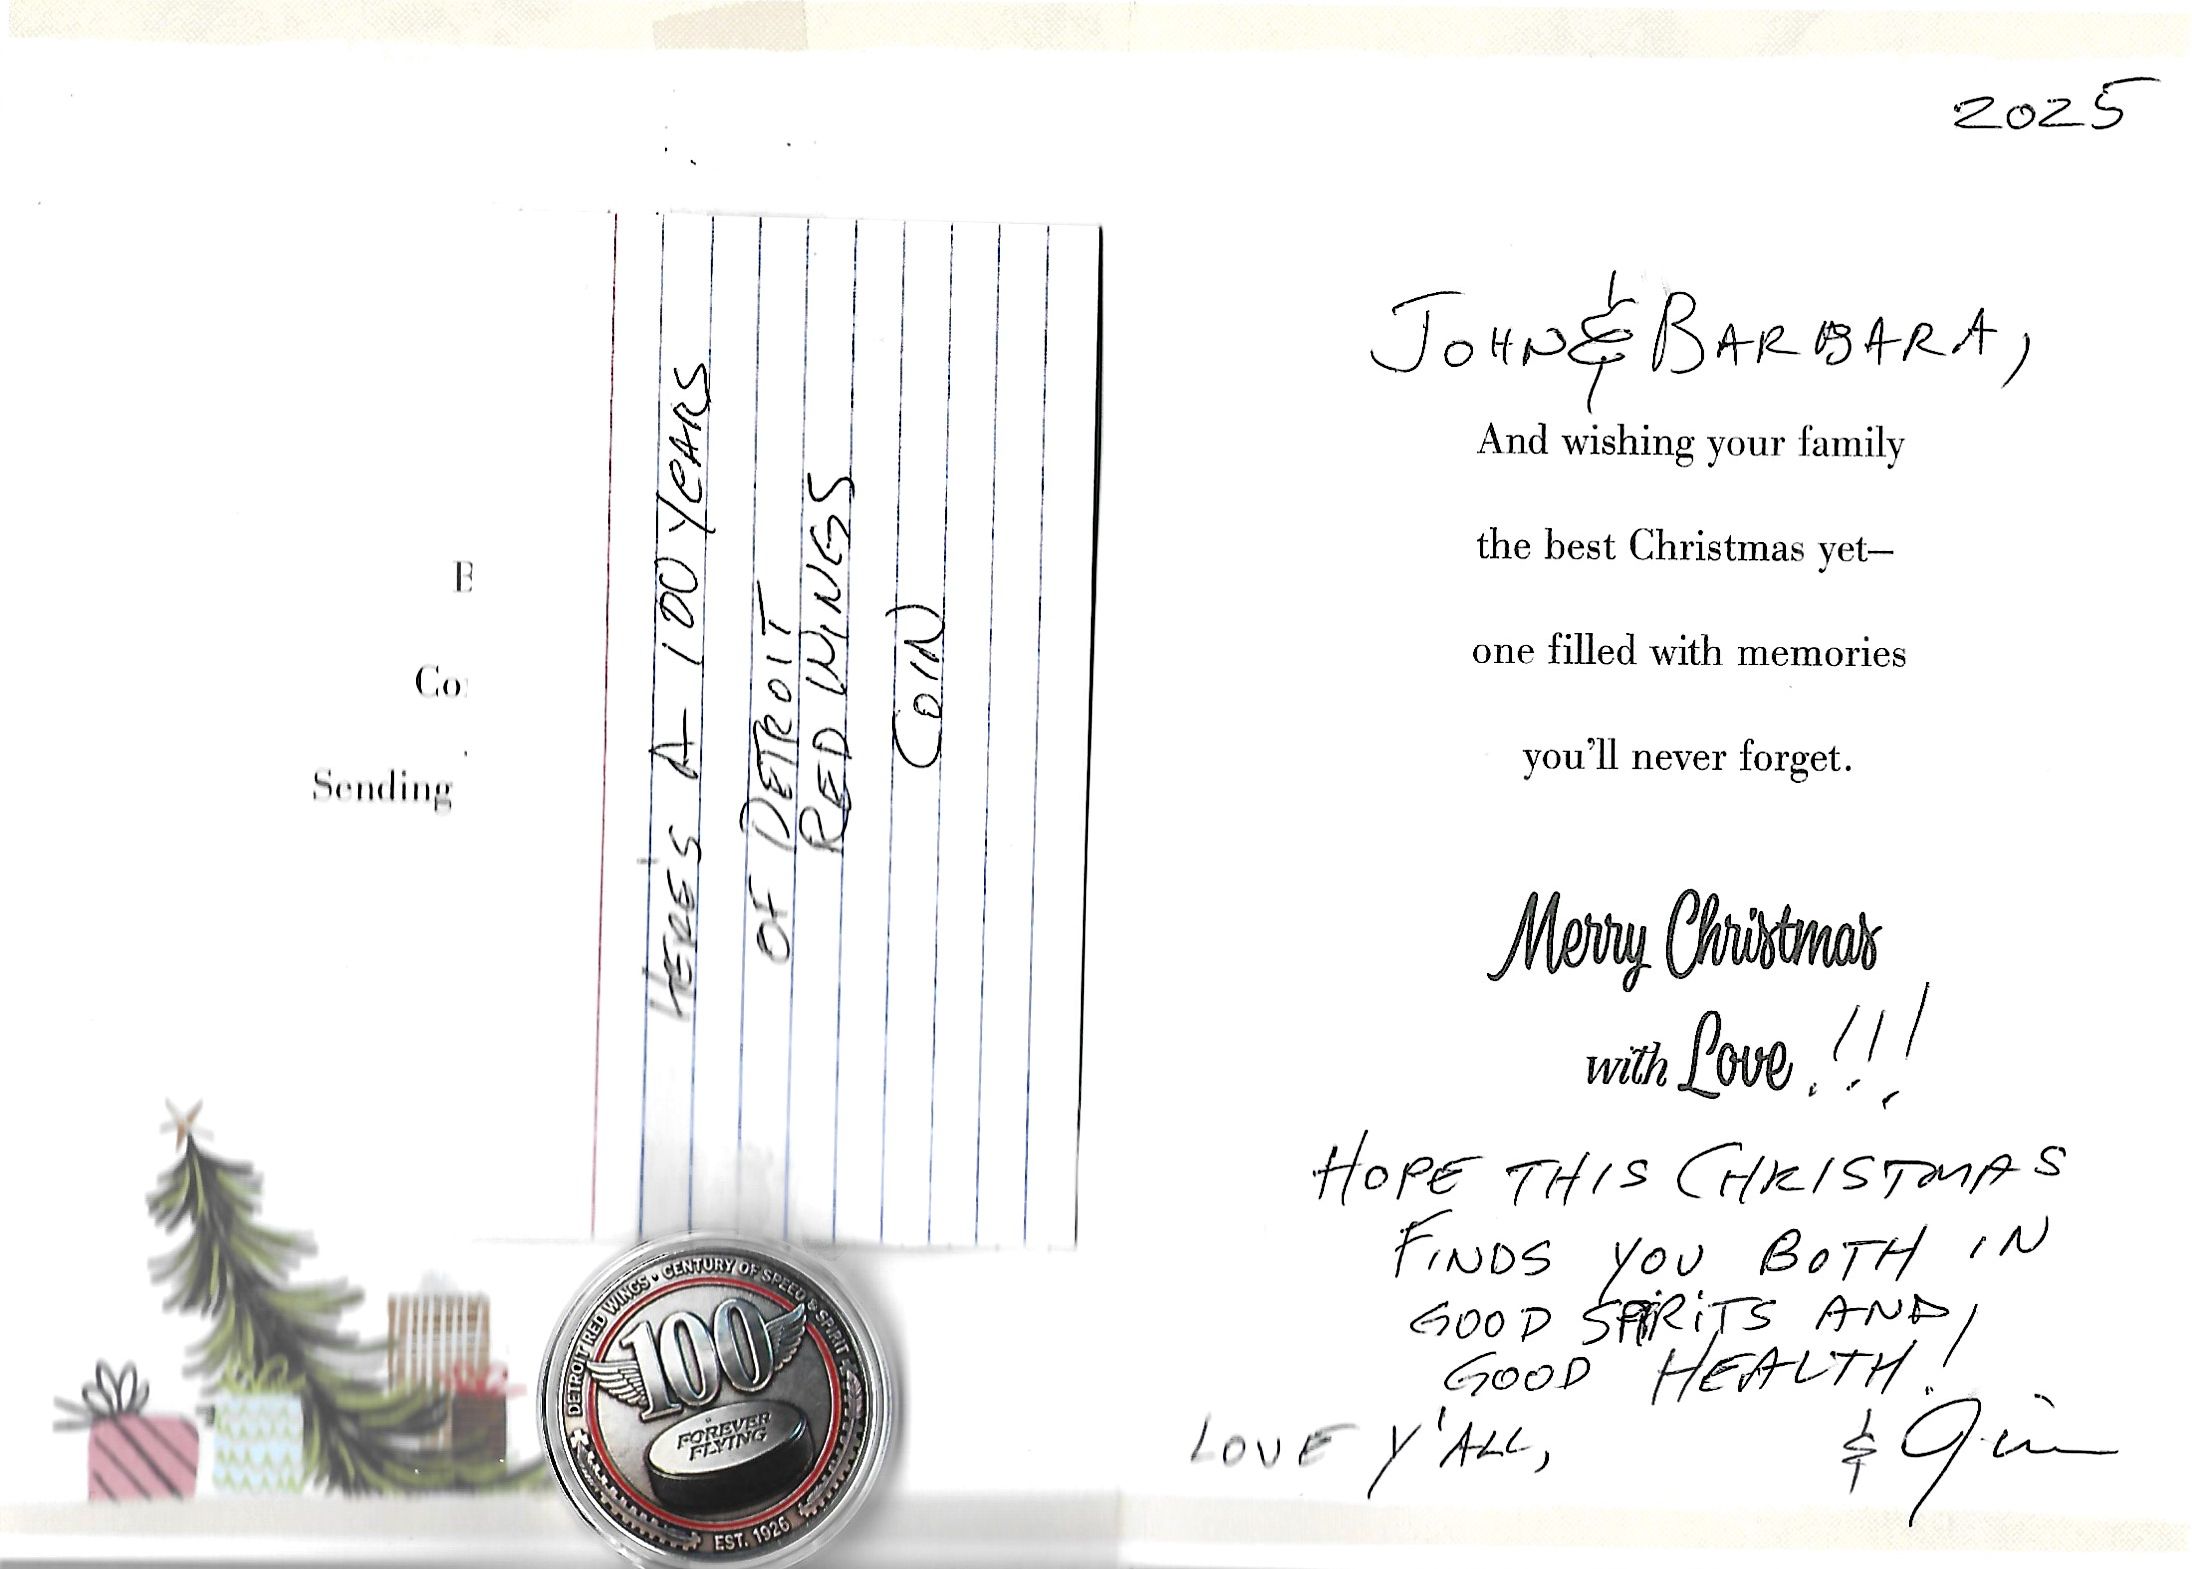 2025
B
Co
Sending
HERE'S A 100 YEARS
OF DETROIT
RED WINGS
COIN
DETROIT RED WINGS • CENTURY OF SPEED & SPIRIT
100
FOREVER
FLYING
EST. 1926
JOHN & BARBARA,
And wishing your family
the best Christmas yet—
one filled with memories
you'll never forget.
Merry Christmas
with Love!!!
HOPE THIS CHRISTMAS
FINDS YOU BOTH IN
GOOD SPIRITS AND
GOOD HEALTH!
LOVE Y'ALL,
& Jim